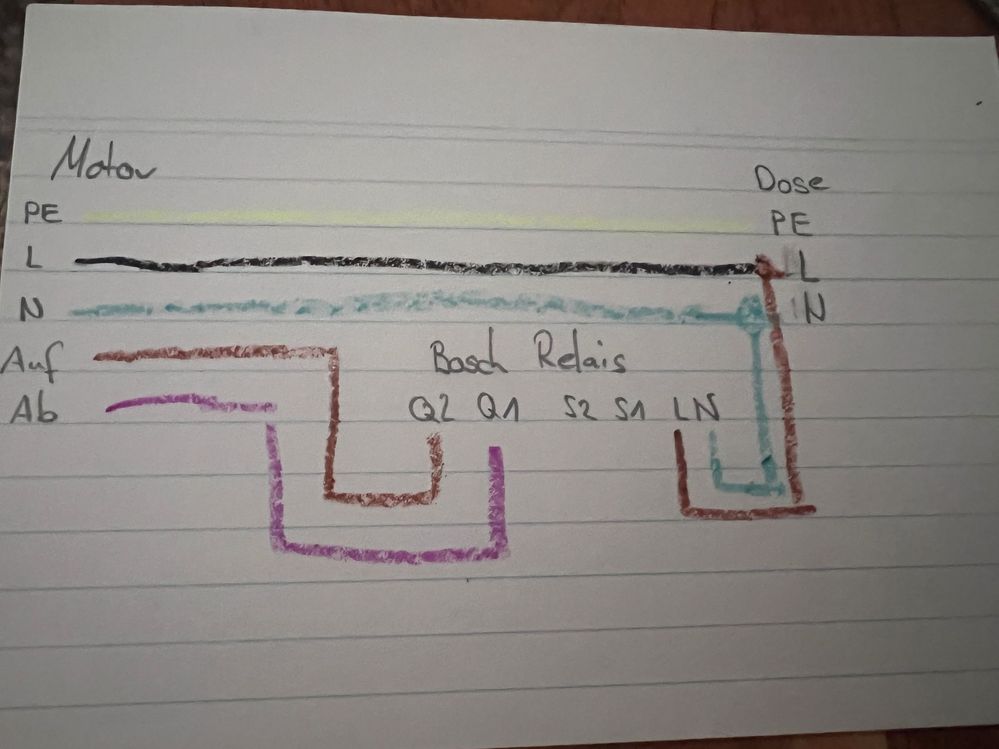 Motor
Dose
PE PE
L L
N N
Auf Bosch Relais
Ab Q2 Q1 S2 S1 L N